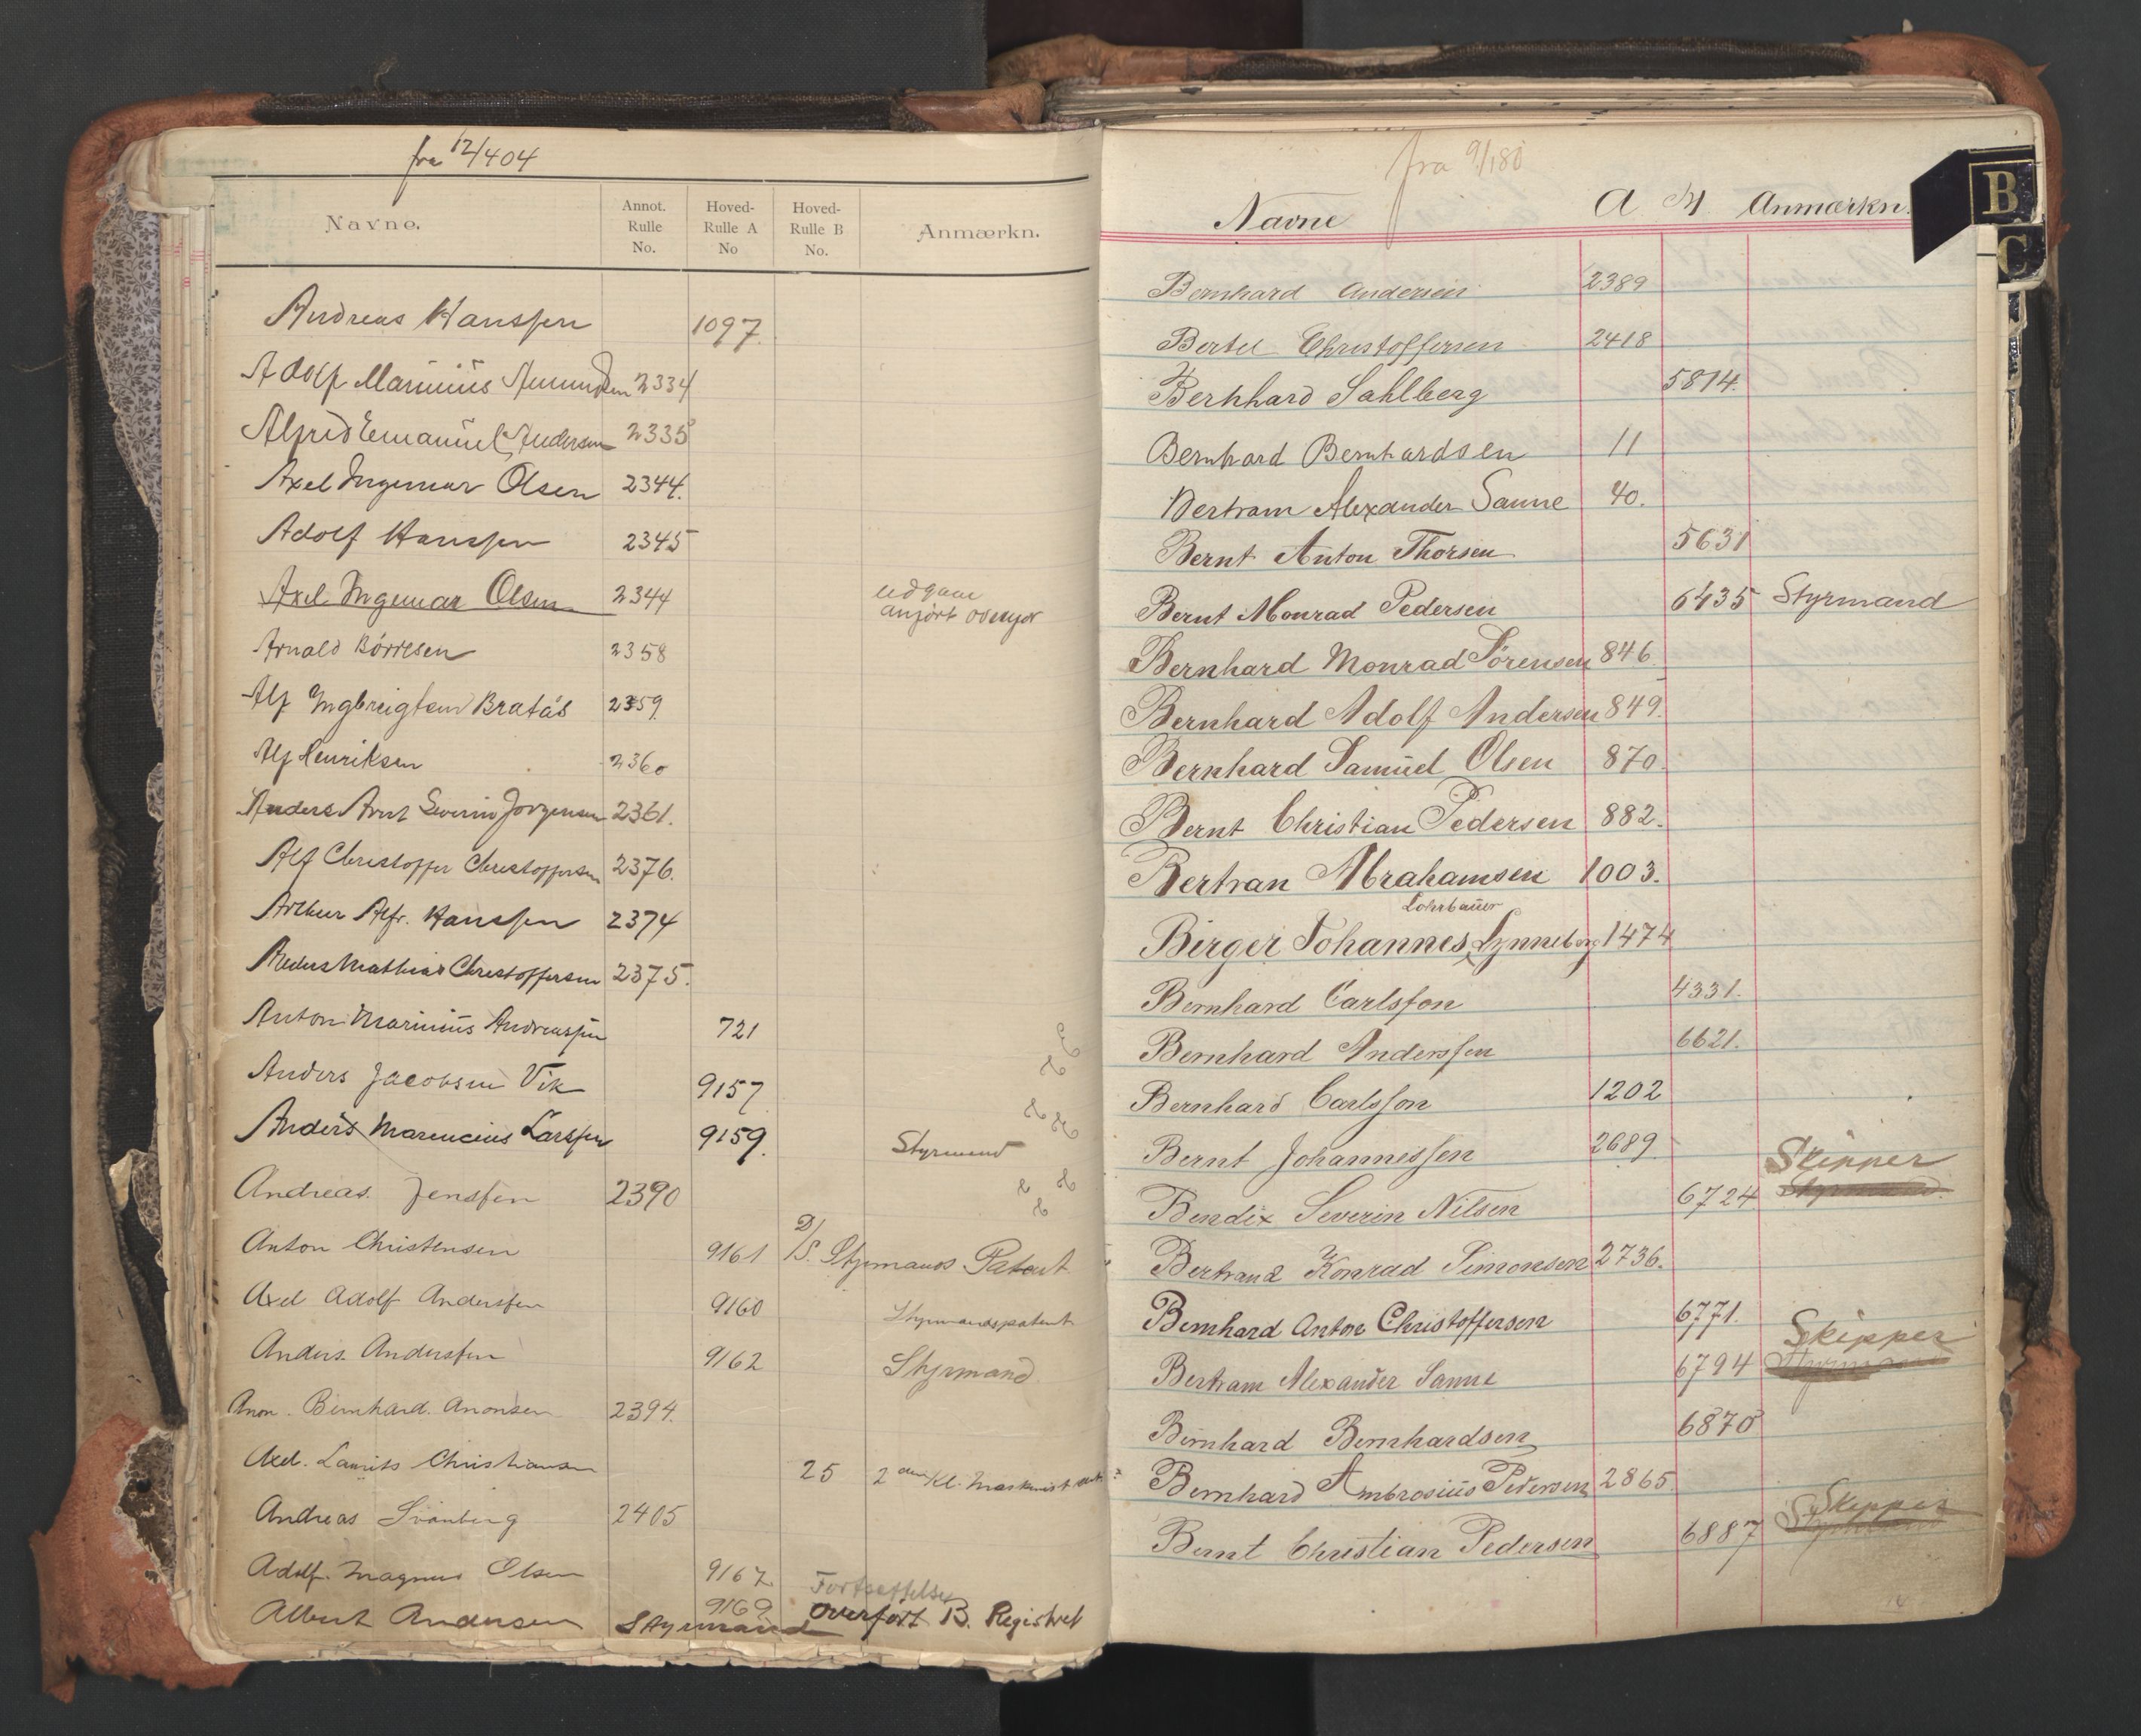 fra 12/404
Navne. Annot. Rulle No. Hoved-Rulle A No Hoved-Rulle B No. Anmærkn.
Andreas Hanssen 1097.
Adolf Marinius Amundsen 2334
Alfred Emanuel Andersen 2335
Axel Ingemar Olsen 2344.
Adolf Hanssen 2345
Axel Ingemar Olsen 2344 udgaar anført ovenfor
Arnald Börresen 2358
Alf Ingbreigtsen Bratås 2359.
Alf Henriksen 2360
Anders Arnt Severin Jørgensen 2361.
Alf Christoffer Christoffersen 2376.
Arthur Alfr. Hanssen 2374
Mathias Christoffersen 2375.
Anton Marinius Andreassen 721
Anders Jacobsen Vik 9157
Anders Marencius Larssen 9159. Styrmand
Andreas Jenssen 2390
Anton Christensen 9161 D/S. Styrmands Patent
Axel Adolf Anderssen 9160 Styrmandspatent
Anders Anderssen 9162 Styrmand.
Anon. Bernhard. Anonsen 2394.
Axel. Laurits Christiansen 25 2den Kl. Maskinist
Andreas Svanberg 2405
Adolf. Magnus Olsen 9167
Albert Andersen 9169 Styrmand
Fortsættelse
overført B. Registret
fra 9/180
Navne A H Anmærkn.
B
C
Bernhard Andersen 2389
Bertel Christoffersen 2418
Bernhard Sahlberg 5814.
Bernhard Bernhardsen 11
Bertram Alexander Sanne 40.
Bernt Anton Thorsen 5631
Bernt Monrad Pedersen 6435 Styrmand
Bernhard Monrad Sörensen 846.
Bernhard Adolf Andersen 849.
Bernhard Samuel Olsen 870.
Bernt Christian Pedersen 882.
Bertran Abrahamsen 1003.
Lohrbauer
Birger Johannes Lynneborg 1474
Bernhard Carlsson 4331.
Bernhard Anderssen 6621.
Bernhard Carlsson 1202
Bernt Johannessen 2689.
Skipper
Bendix Severin Nilsen 6724 Styrmand.
Bertrand Konrad Simonsen 2736.
Bernhard Anton Christoffersen 6771.
Skipper
Bertram Alexander Sanne 6794 Styrmand
Bernhard Bernhardsen 6870
Bernhard Ambrosius Pedersen 2865
Skipper
Bernt Christian Pedersen 6887 Styrmand